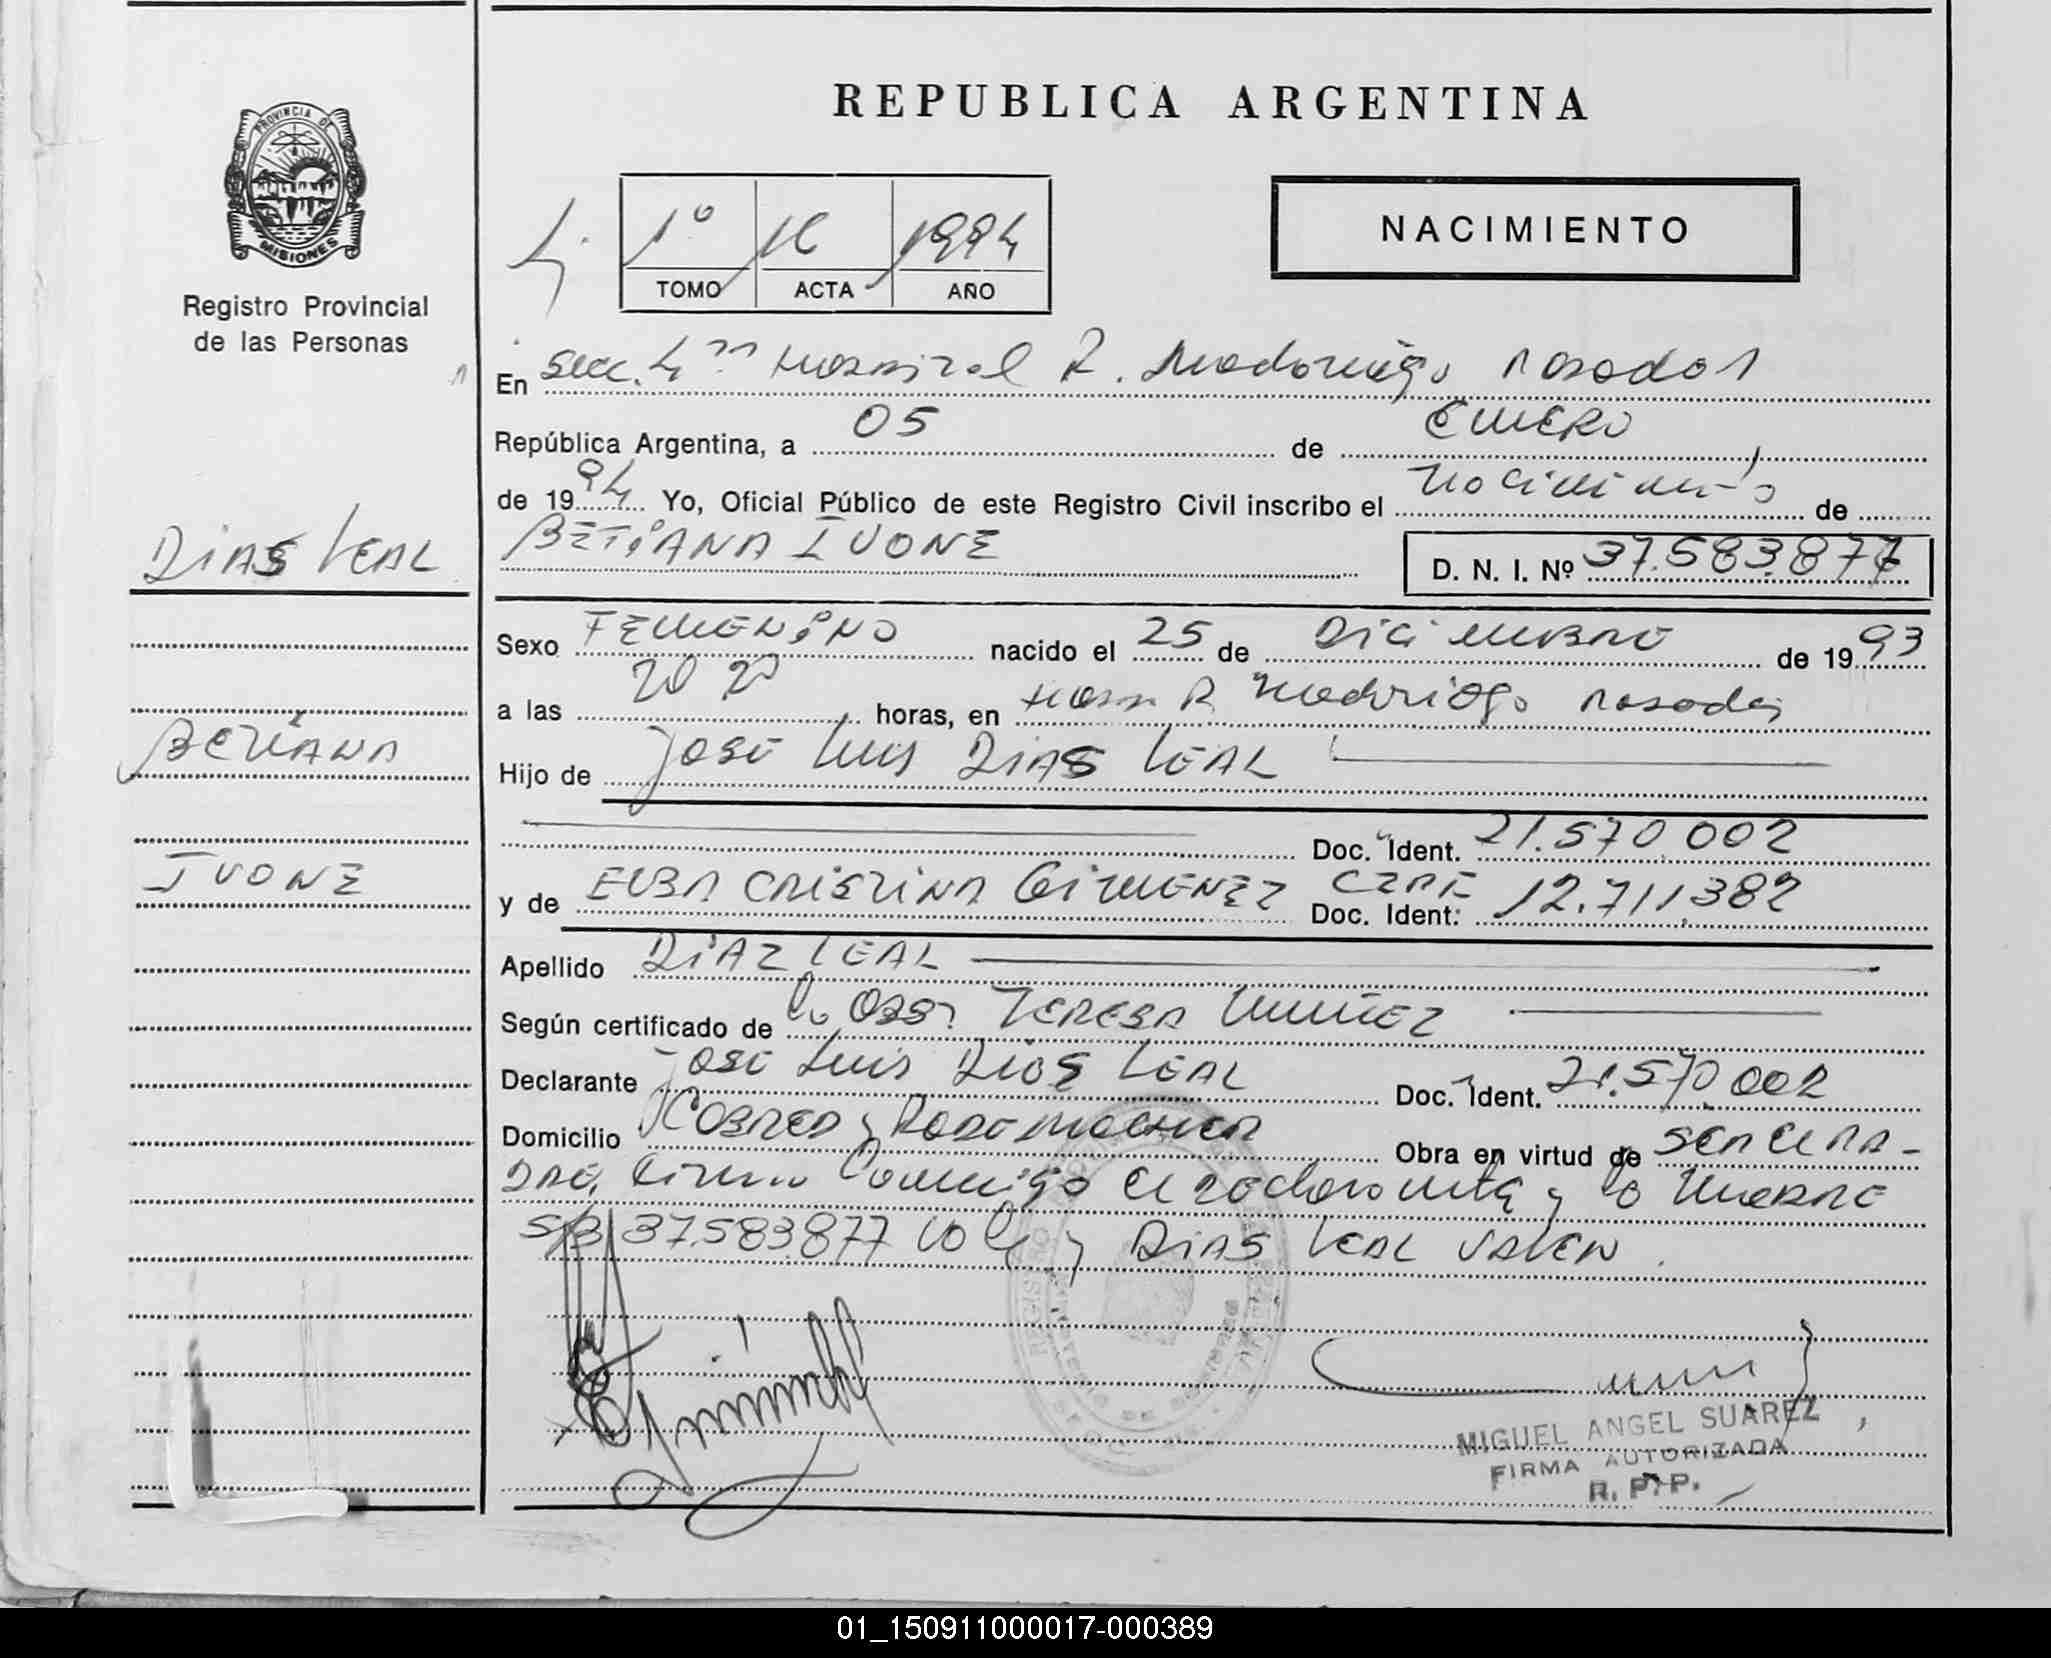 REPUBLICA ARGENTINA
PROVINCIA DE
MISIONES
Registro Provincial
de las Personas
1º 1994
TOMO ACTA AÑO
NACIMIENTO
En Secc. 4ª Hospital R. Madariaga Posadas
República Argentina, a 05 de ENERO
de 1994 Yo, Oficial Público de este Registro Civil inscribo el Nacimiento de
DIAS LEAL
BETIANA IVONE
D. N. I. Nº 37.583.877
Sexo FEMENINO nacido el 25 de DICIEMBRE de 1993
a las 20 20 horas, en Hosp R Madariaga Posadas
BETIANA
Hijo de JOSE LUIS DIAS LEAL
Doc. Ident. 21.570.002
IVONE
y de ELBA CRISTINA GIMENEZ Doc. Ident: 12.711.382
Apellido DIAZ LEAL
Según certificado de la OBST TERESA NUÑEZ
Declarante JOSE LUIS DIAS LEAL Doc. Ident. 21.570.002
Domicilio Obra en virtud de SER EL PA-
DRE, Firma Conmigo el y la MADRE
S/B 37.583.877 VALE y DIAS LEAL VALEN
MIGUEL ANGEL SUAREZ
FIRMA AUTORIZADA
R. P. P.
01_150911000017-000389